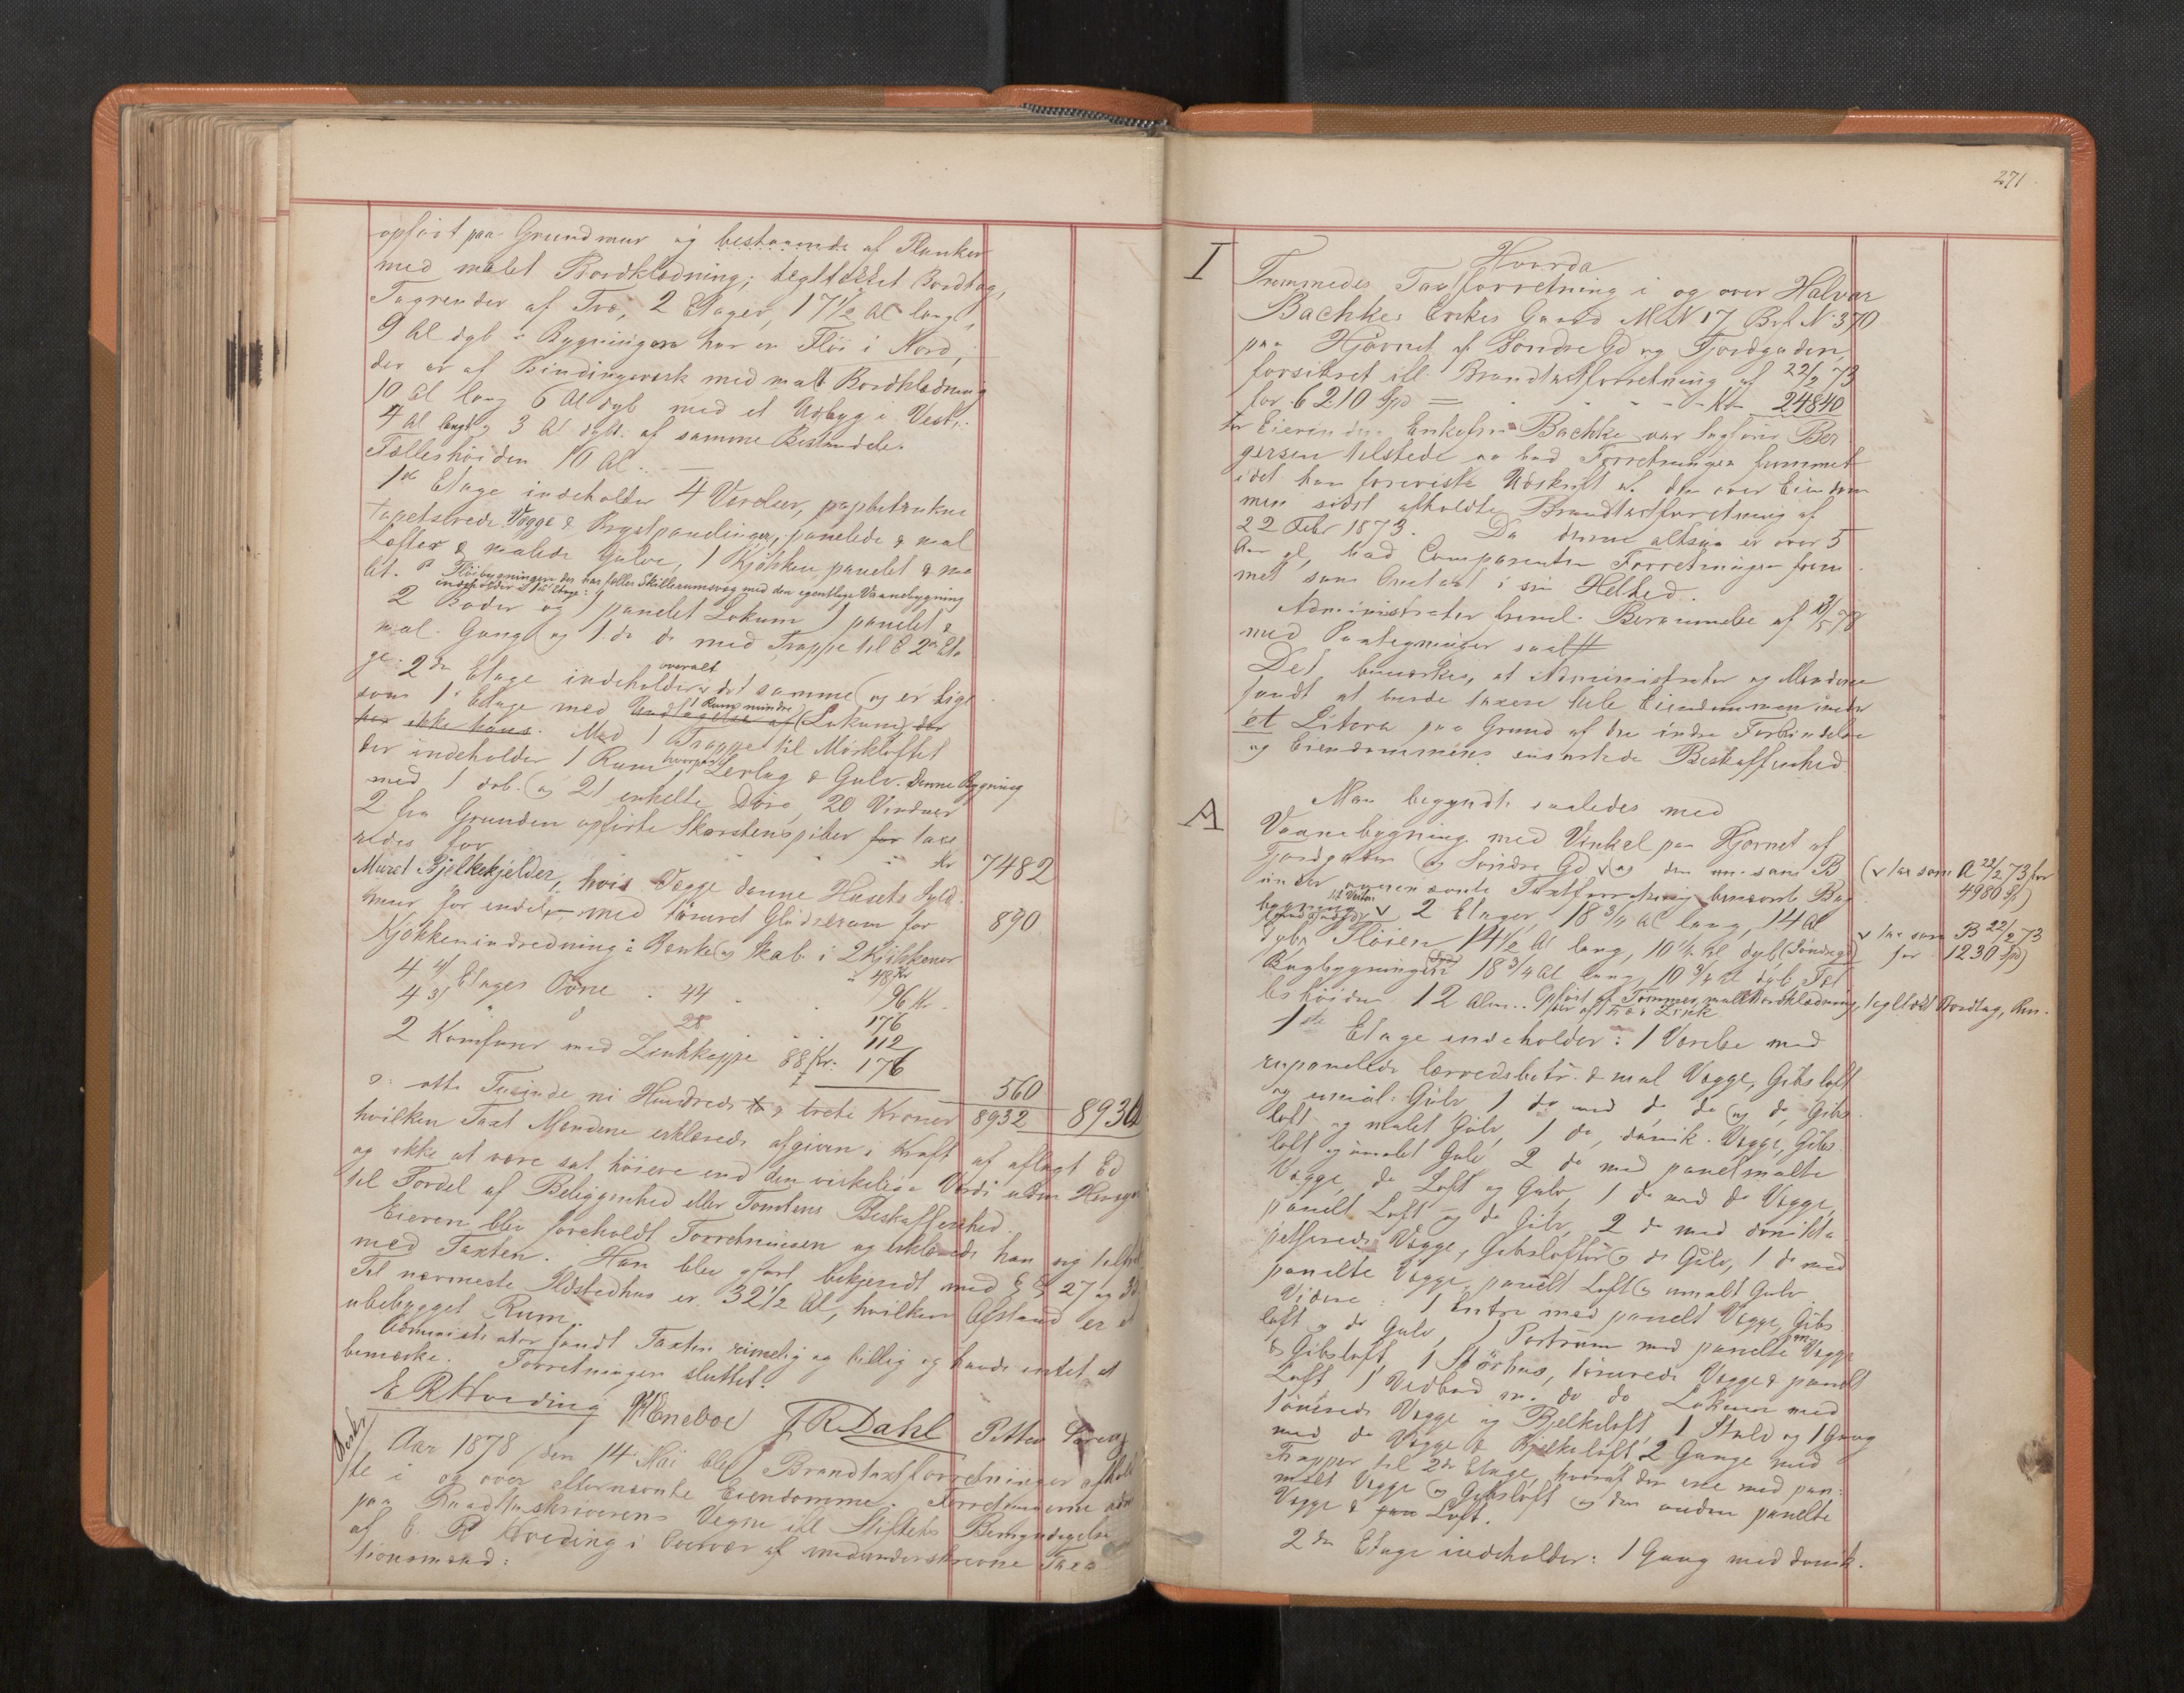 opført paa Grundmur og bestaaende af Planker
med malet Bordklædning; tegltækket Bordtag,
Tagrender af Træ, 2 Etager, 17 1/2 Al lang,
9 Al dyb. Bygningen har en Fløi i Nord,
der er af Bindingsverk med malt Bordklædning
10 Al lang 6 Al dyb med et Udbyg i Vest,
4 Al langt og 3 Al dybt af samme Bestanddele.
Fælleshøiden 10 Al.
1ste Etage indeholder 4 Værelser, papbetrukne
tapetserede Vægge & Brystpanelinger, panelede & mal
Lofter & malede Gulve, 1 Kjøkken panelet & ma
let. Fløibygningen der har fælles Skillerumsvæg med den egentlige Vaanebygning
indeholder i 1ste Etage:
2 Boder og 1 panelet Lokum 1 panelet &
mal. Gang og 1 do do med Trappe til 2den Eta
ge: 2den Etage indeholder overalt det samme og er lige
som 1ste Etage med Undtagelse af 1 Rum mindre (Lokum) der
her ikke haves. Med 1 Trappe til Mørkloftet
der indeholder 1 Rum hvorpaa Lerlag & Gulv. Denne Bygning
med 1 dob. og 21 enkelte Døre, 20 Vinduer
2 fra Grunden opførte Skorstenspiber for taxe
redes for Kr 7482
Muret Bjelkekjelder, hvis Vægge danne Husets Fyld
mur for endel med tømret Gladserum for 890
Kjøkkenindredning: Bænke og Skab i 2 Kjøkkener
à 48 Kr 96 Kr.
4 4/ Etages Ovne 44 176
4 3/ " " 28 112
2 Komfurer med Zinkkappe 88 Kr: 176
560
o: otte Tusinde ni Hundrede to og trete Kroner 8932 8932
hvilken Taxt Mændene erklærede afgiven i Kraft af aflagt Ed
og ikke at være sat høiere end den virkelige Værdi uden Hensyn
til Fordel af Beliggenhed eller Tomtens Beskaffenhed.
Eieren blev foreholdt Forretningen og erklærede han sig tilfreds
med Taxten. Han blev gjort bekjendt med § § 27 og 30
Til nærmeste Ildstedhus er 32 1/2 Al, hvilken Afstand er et
ubebygget Rum.
Administrator fandt Taxten rimelig og billig og havde intet at
bemærke. Forretningen sluttet.
E R Hveding Eneboe J R Dahl Petter
Aar 1878 den 14 Mai blev Brandtaxtforretninger afhold
te i og over efternævnte Eiendomme. Forretningerne adm
paa Raadstuskriverens Vegne ifl Stiftets Bemyndigelse
af E. R Hveding i Overvær af medunderskrevne Taxa
tionsmænd:
271
I
Hvorda
Fremmedes Taxtforretning i og over Halvar
Bachkes Enkes Gaard MN 17 Brf. N 370
paa Hjørnet af Søndre Gd og Fjordgaden,
forsikret ifl Brandtaxtforretning af 22/2 73
for 6210 Spd = Kr 24840
For Eierinden Enkefru Bachke var Sagfører Ber
gersen tilstede og bad Forretningen fremmet
idet han foreviste Udskrift af den over Eiendom
men sidst afholdte Brandtaxtforretning af
22 Febr 1873. Da denne altsaa er over 5
Aar gl, bad Comparenten Forretningen frem
met som Omtaxt i sin Helhed.
Administrator freml. Berammelse af 13/5 78
med Paategninger
Det bemærkes, at Administrator og Mændene
fandt at burde taxere hele Eiendommen under
ét Litera paa Grund af den indre Forbindelse
og Eiendommens ensartede Beskaffenhed
Man begyndte saaledes med
A
Vaanebygning med Vinkel paa Hjørnet af
Fjordgaden og Søndre Gd v og den som B (v tax som A 22/2 73 for
4980 Sp)
under ovennævnte Taxtforretning benævnte Bag
bygning v 2 Etager, 18 3/4 Al lang, 14 Al v tax som B 22/2 73
for 1230 Spd)
dyb, Fløien 14 1/2 Al lang, 10 1/4 Al dyb (Søndregd)
Bagbygningen 18 3/4 Al lang, 10 3/4 Al dyb, Fæl
leshøiden 12 Alen. Opført af Tømmer, malt Bordklædning, tegltækt Bordtag, Ren-
der af Zink
1ste Etage indeholder: 1 Værelse med
rupanelede lærredsbetr. & mal Vægge, Gibsloft
og umal. Gulv 1 do med do do og do, Gibs
loft og malet Gulv, 1 do, dønik. Vægge, Gibs
loft og umalet Gulv 2 do med panelmalte
Vægge, do Loft og Gulv, 1 do med do Vægge,
panelt Loft og do Gulv, 2 do med dønikta
petserede Vægge, Gibslofter og do Gulv, 1 do med
panelte Vægge, panelt Loft og umalt Gulv
Videre: 1 Entre med panelt Vægge, Gibs
loft og do Gulv, 1 Portrum med panelte Vægge
& Gibsloft, 1 Størhus, tømrede Vægge & panelt
Loft 1 Vedbod m. do do Lokum med
tømrede Vægge og Bjelkeloft, 1 Stald og 1 Gang
med do Vægge & Bjelkeloft, 2 Gange med
Trapper til 2den Etage, hvoraf den ene med pan:
malt Vægge og Gibsloft og den anden panelte
Vægge & pan Loft.
2den Etage indeholder: 1 Gang med dønik.